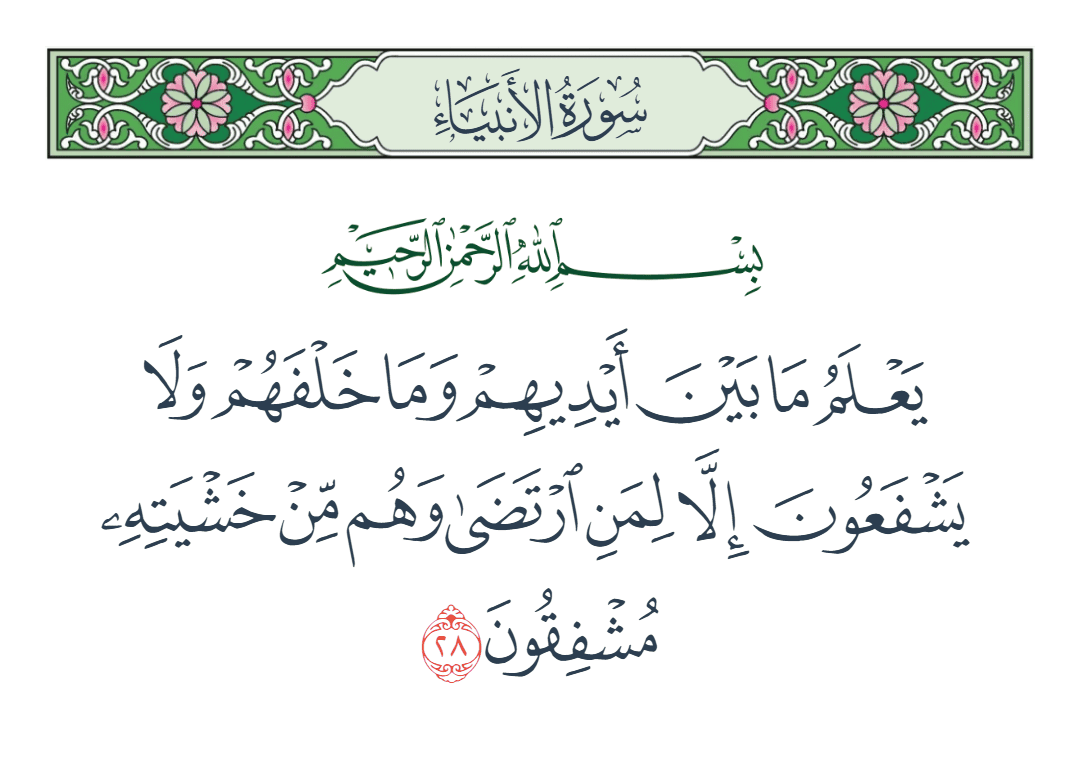 سُورَةُ الأَنبِيَاءِ
بِسْمِ ٱللَّهِ ٱلرَّحْمَٰنِ ٱلرَّحِيمِ
يَعْلَمُ مَا بَيْنَ أَيْدِيهِمْ وَمَا خَلْفَهُمْ وَلَا
يَشْفَعُونَ إِلَّا لِمَنِ ٱرْتَضَىٰ وَهُم مِّنْ خَشْيَتِهِۦ
مُشْفِقُونَ ٢٨